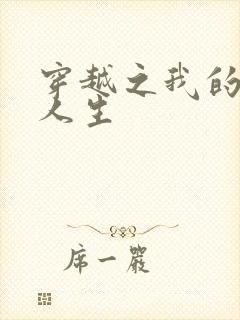 穿越之我的
人生
席一严